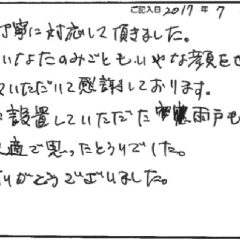 ご記入日 2017 年 7
丁寧に対応して頂きました。
いなたのみごともいやな顔をせ
ていただいて感謝しております。
設置していただた 雨戸も
適で思ったとうりでした。
りがとうございました。